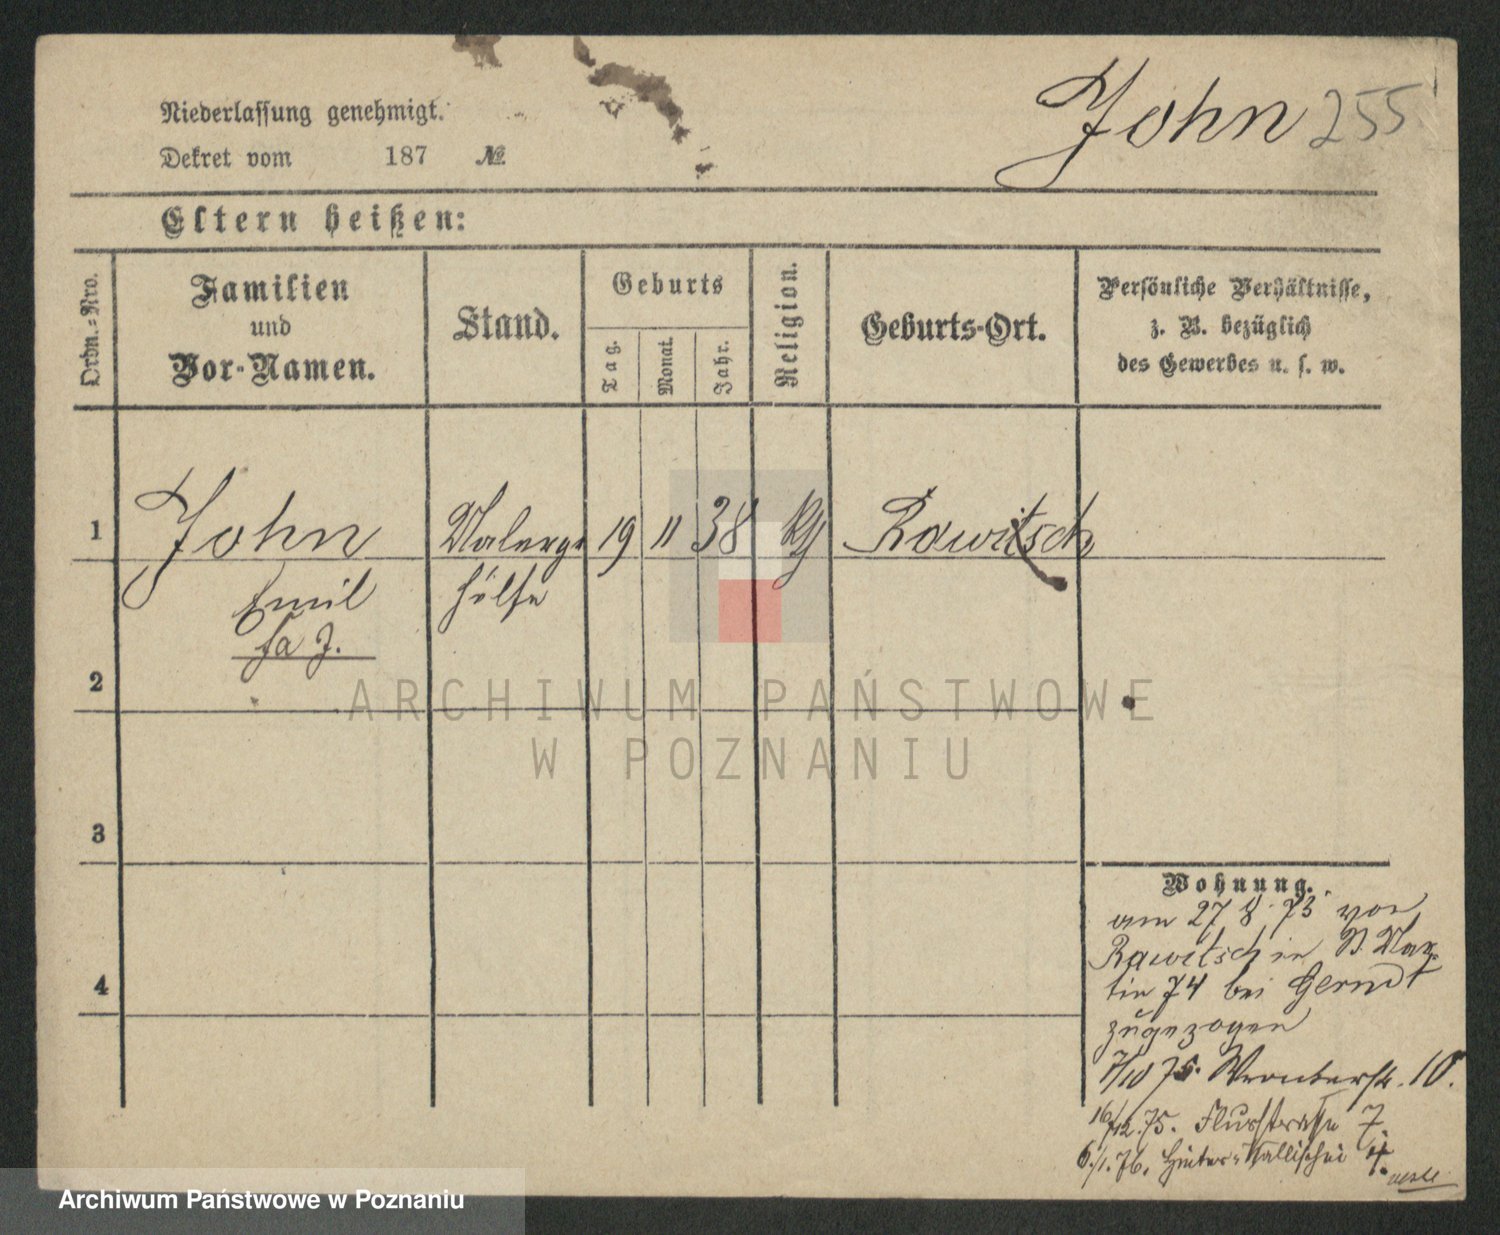 Niederlassung genehmigt.
Dekret vom 187 №
John 255
Eltern heißen:
Ordn.-Nro.
Familien
und
Vor-Namen.
Stand.
Geburts
Tag.
Monat.
Jahr.
Religion.
Geburts-Ort.
Persönliche Verhältnisse,
z. B. bezüglich
des Gewerbes u. s. w.
1 John Malerge 19 11 38 Rawitsch
Emil hülfe
2
ARCHIWUM PAŃSTWOWE
W POZNANIU
3
Wohnung.
am 27 8 73 von
Rawitsch in St. Mar-
tin 74 bei Gerndt
4
zugezogen
7/10 75. Wronkerstr. 10.
16/12. 75. Flurstrasse 7.
6./1. 76. Hinter-Wallischei 4.
Archiwum Państwowe w Poznaniu